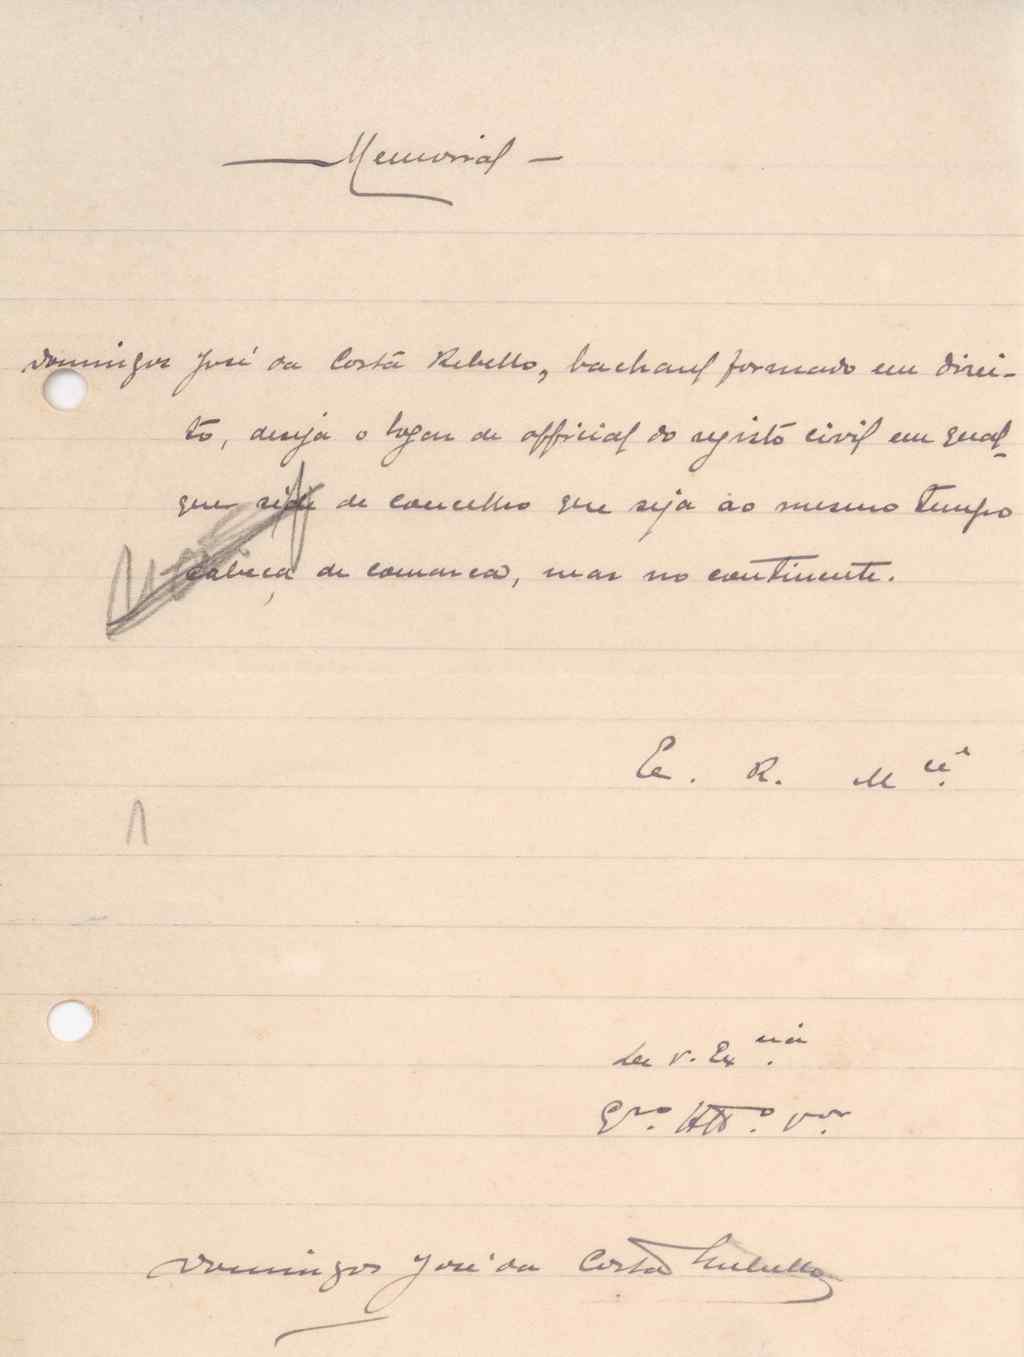 — Memorial —
Domingos José da Costa Rebello, bacharel formado em direi-
to, deseja o logar de official do registo civil em qual-
quer séde de concelho que seja ao mesmo tempo
cabeça de comarca, mas no continente.
E. R. M.cê
De V. Ex.cia
Cr.o Att.o V.or
Domingos José da Costa Rebello